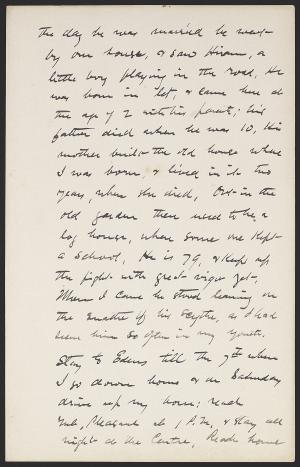 the day he was married he went
by our house, & saw Hiram, a
little boy playing in the road. He
was born in Vt, & came here at
the age of 2 with his parents; his
father died when he was 10, his
mother built the old house where
I was born, & lived in it two
years, when she died. Out in the
old garden there used to be a
log house, where some one kept
a school. He is 79, & keeps up
the fight with great vigor yet.
When I came he stood leaning on
the snathe of his scythe, as I had
seen him so often in my youth.
Stay to Edens till the 7th when
I go down home & on Saturday
drive up my home; reach
Mt. Pleasant at 1 P.M., & stay all
night at the Centre. Reach home